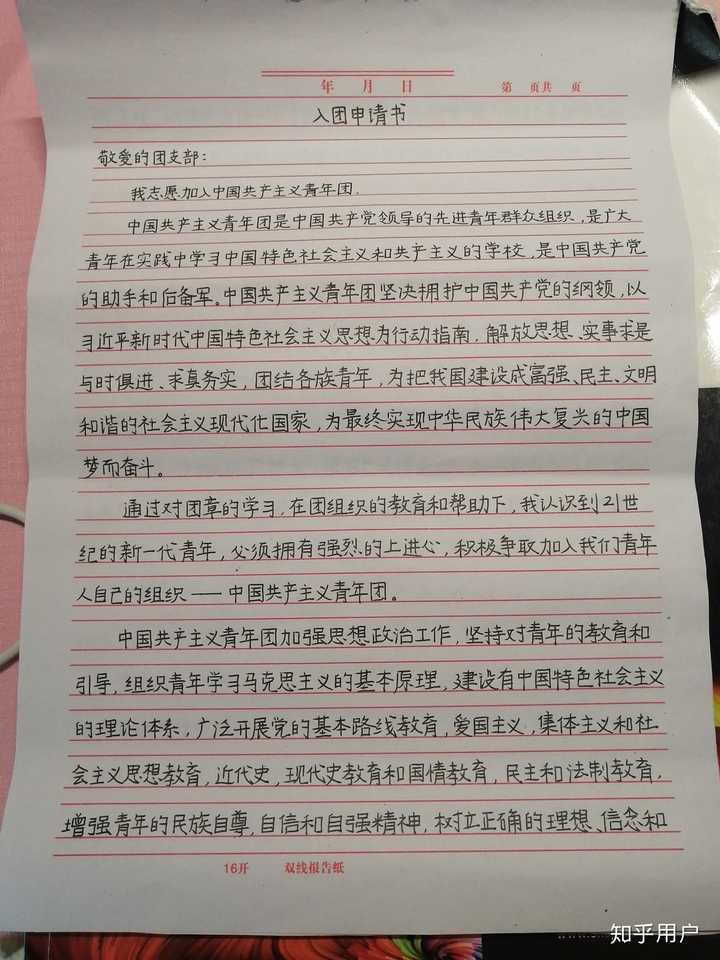 年 月 日
第 页共 页
入团申请书
敬爱的团支部：
我志愿加入中国共产主义青年团.
中国共产主义青年团是中国共产党领导的先进青年群众组织，是广大
青年在实践中学习中国特色社会主义和共产主义的学校，是中国共产党
的助手和后备军。中国共产主义青年团坚决拥护中国共产党的纲领，以
习近平新时代中国特色社会主义思想为行动指南，解放思想、实事求是
与时俱进、求真务实，团结各族青年，为把我国建设成富强、民主、文明
和谐的社会主义现代化国家，为最终实现中华民族伟大复兴的中国
梦而奋斗。
通过对团章的学习，在团组织的教育和帮助下，我认识到21世
纪的新一代青年，必须拥有强烈的上进心，积极争取加入我们青年
人自己的组织——中国共产主义青年团。
中国共产主义青年团加强思想政治工作，坚持对青年的教育和
引导，组织青年学习马克思主义的基本原理，建设有中国特色社会主义
的理论体系，广泛开展党的基本路线教育，爱国主义，集体主义和社
会主义思想教育，近代史，现代史教育和国情教育，民主和法制教育，
增强青年的民族自尊，自信和自强精神，树立正确的理想、信念和
16开 双线报告纸
知乎用户